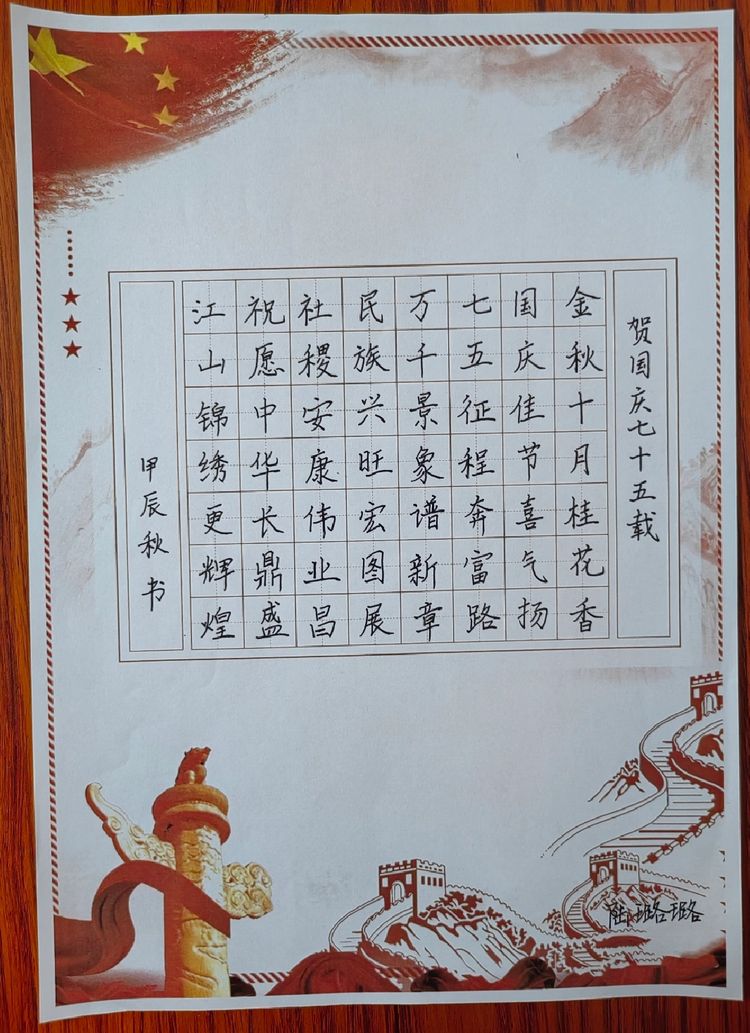 贺国庆七十五载
金秋十月桂花香
国庆佳节喜气扬
七五征程奔富路
万千景象谱新章
民族兴旺宏图展
社稷安康伟业昌
祝愿中华长鼎盛
江山锦绣更辉煌
甲辰秋书
璐璐